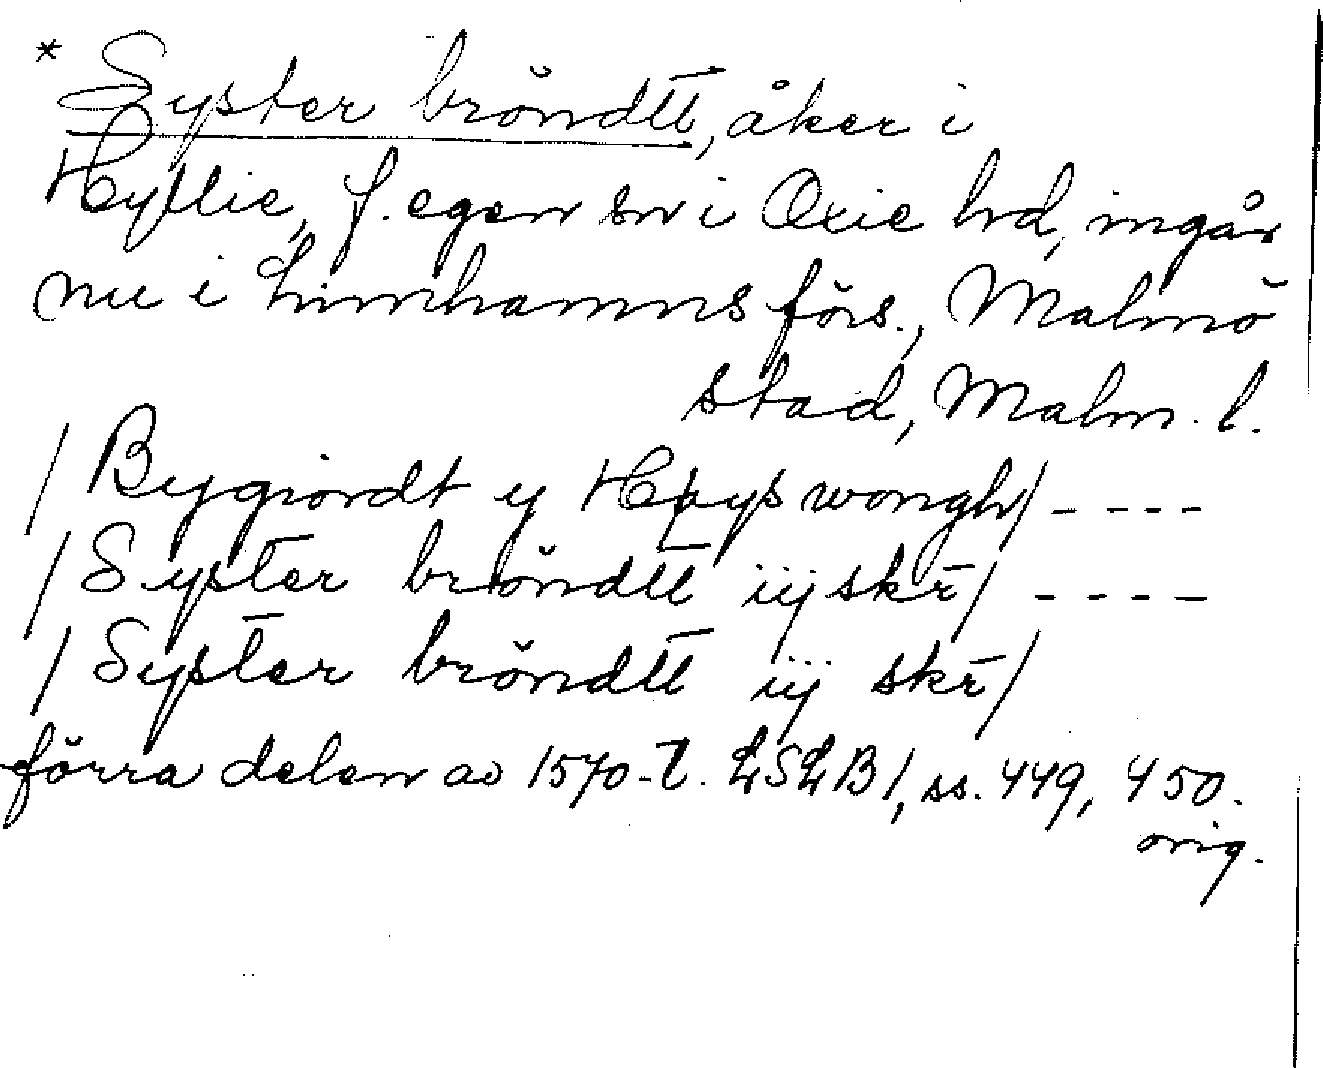 * Syster bröndtt, åker i
Hyllie, f. egen sn i Oxie hd, ingår
nu i Limhamns förs., Malmö
stad, Malm. l.
/Bygiordt y Høyswongh/ ----
/Syster bröndtt iij skr̄/ ----
/Syster bröndtt iij skr̄/
förra delen av 1570-t. LSLB1, ss. 449, 450.
orig.